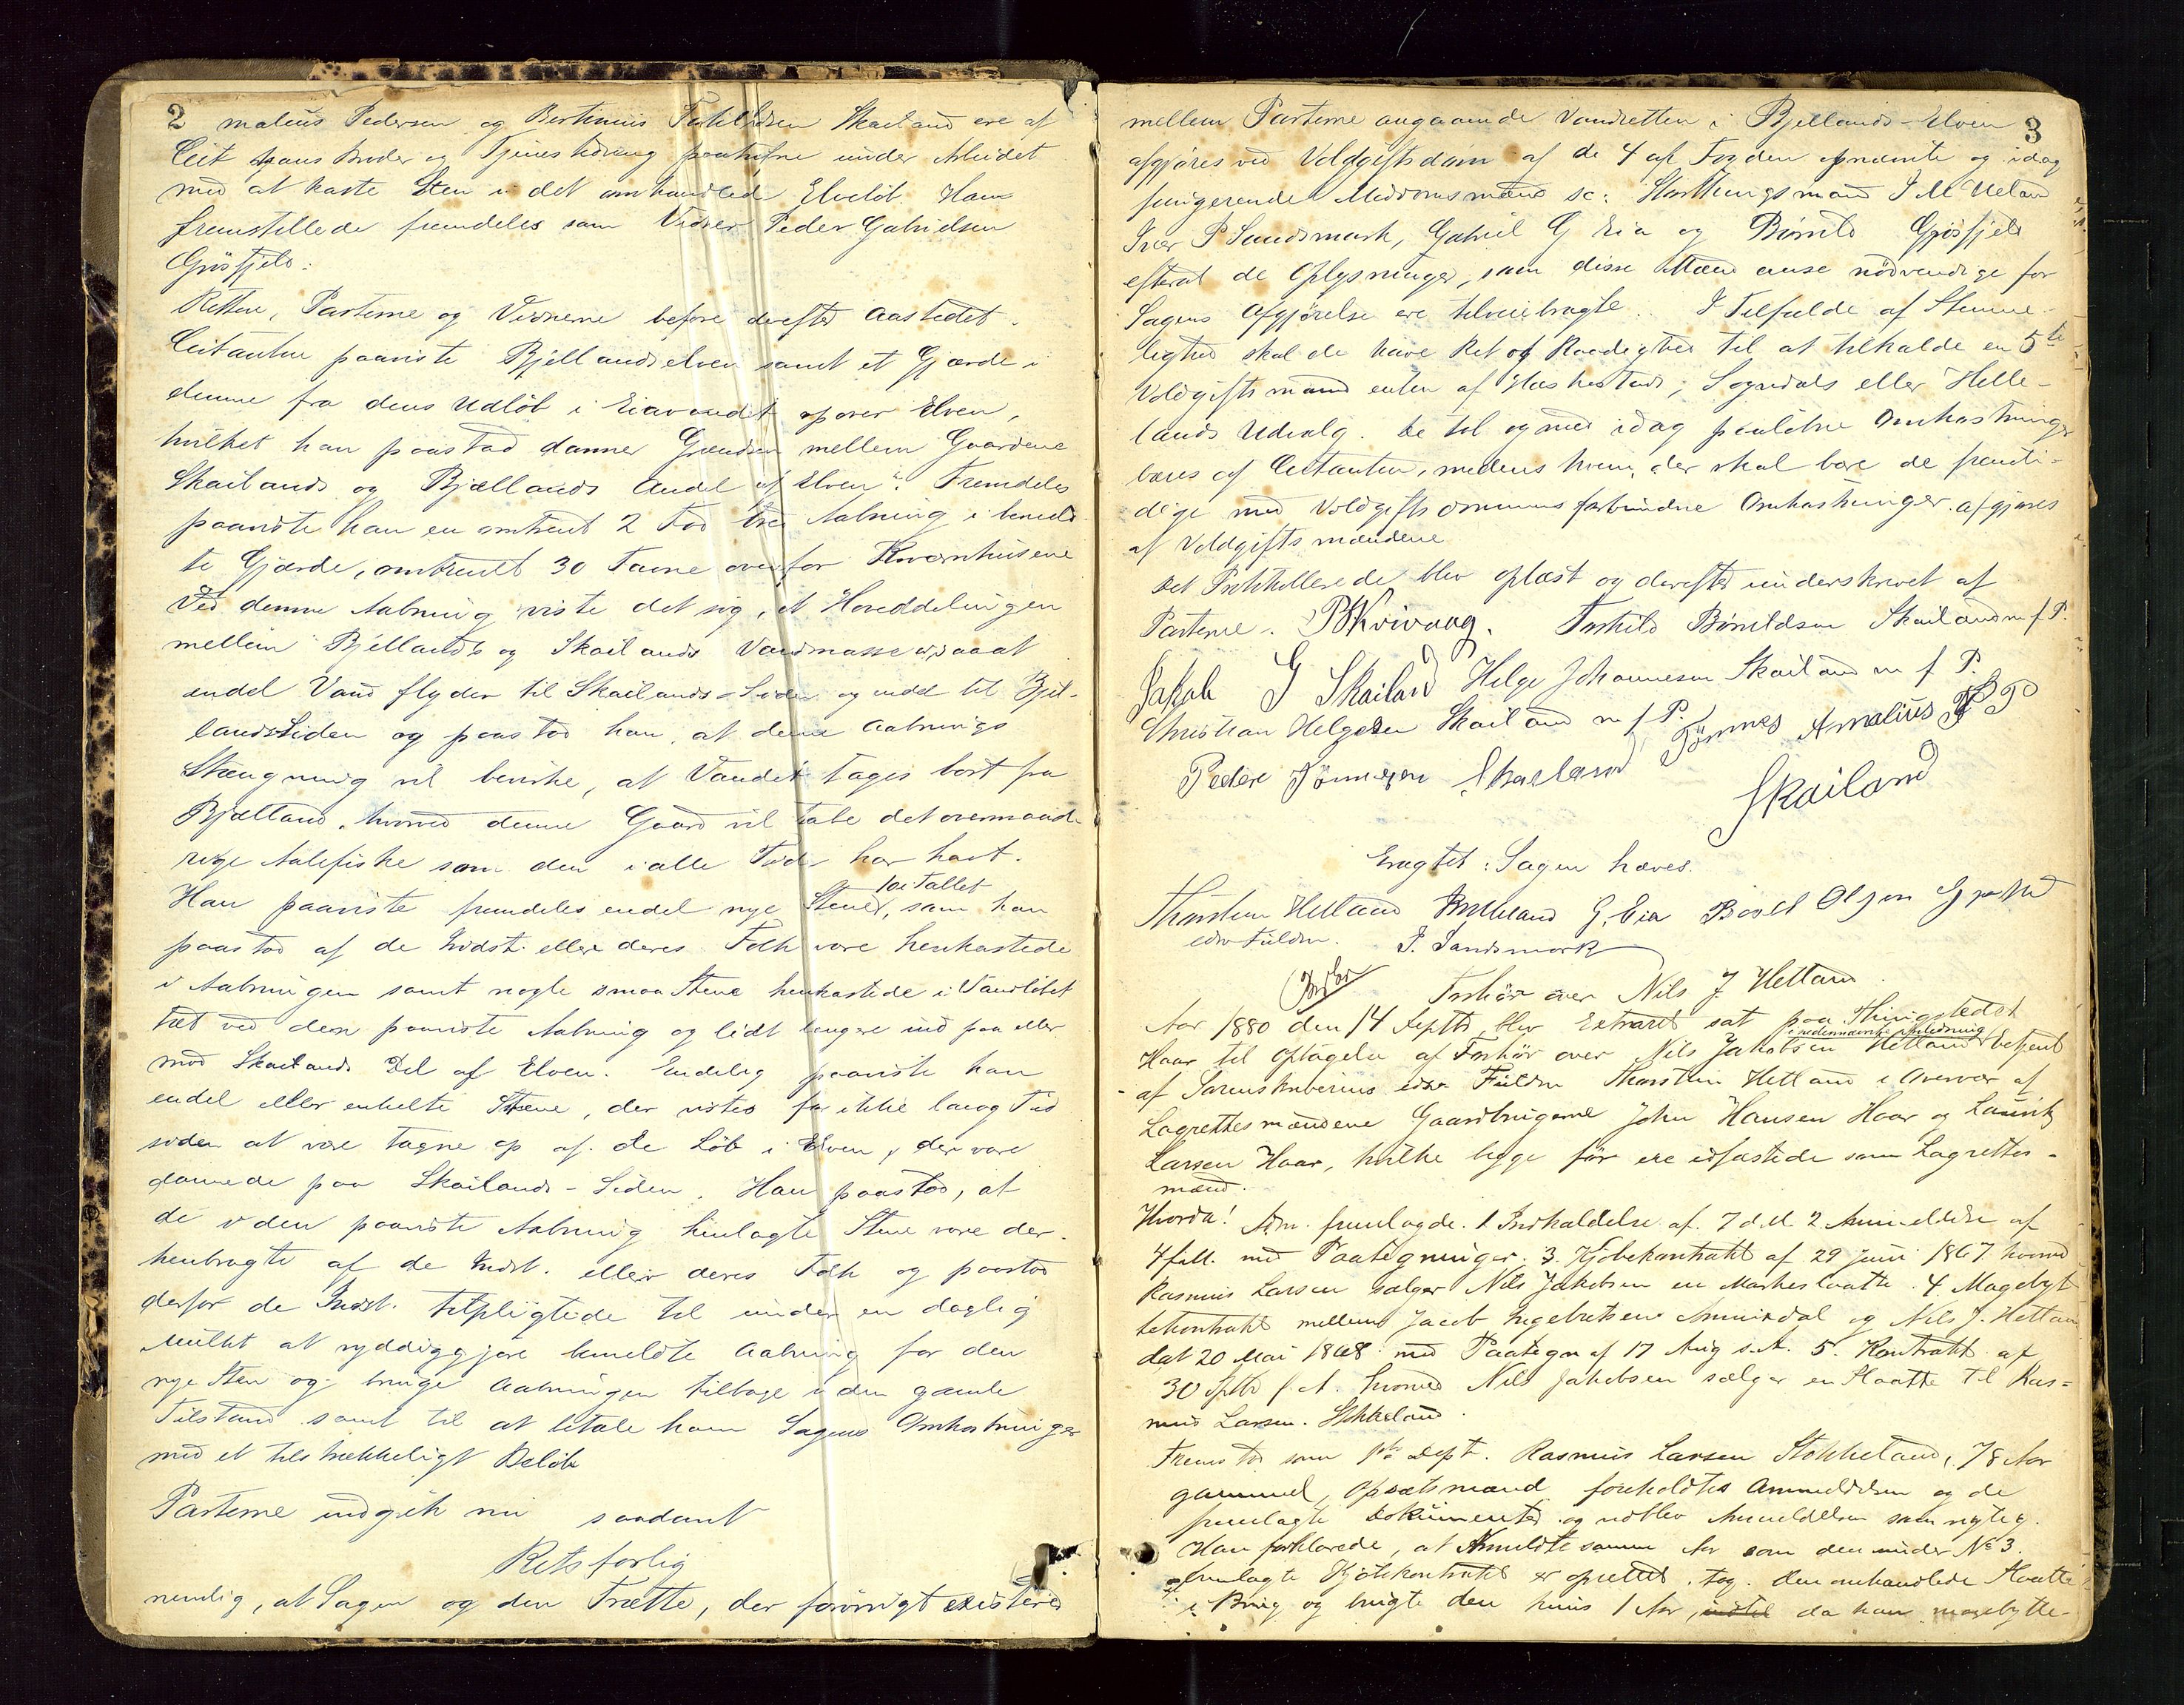 2
malius Pedersen og Bertinius Torkildsen Skailand ere af
Cit hans Broder og Tjenestedreng paatrufne under Arbeidet
med at kaste Sten i det omhandlede Elveløb. Han
fremstillede fremdeles som Vidner Peder Gabrielsen
Gjøsfjeld.
Retten, Parterne og Vidnerne before derefter Aastedet.
Citanten paaviste Bjellandselven samt et Gjærde i
denne fra dens Udløb i Eiavandet opover Elven,
hvilket han paastod danner Grændsen mellem Gaardene
Skailands og Bjellands Andel af Elven. Fremdeles
paaviste han en omtrent 2 Fod bred Aabning i bemeld-
te Gjærde, omtrent 30 Favne ovenfor Kværnhusene
Ved denne Aabning viste det sig, at Hoveddelingen
mellem Bjellands og Skailands Vandmasse
endel Vand flyder til Skailands-Siden og endel til Bjel-
landsSiden og paastod han, at denne Aabnings
Stængning vil bevirke, at Vandet tages bort fra
Bjelland, hvorved denne Gaard vil tabe det overmaade
rige Aalefiske som den i alle Tider har havt.
Han paaviste fremdeles endel nye Stene, 10 i Tallet, som han
paastod af de Indst. eller deres Folk vare henkastede
i Aabningen samt nogle smaa Stene henkastede i Vandløbet
tæt ved den paaviste Aabning og lidt længere ind paa eller
mod Skailands Del af Elven. Endelig paaviste han
endel eller enkelte Stene, der vistes for ikke lang Tid
siden at være tagne op af de Løb i Elven, der vare
dannede paa Skailands-Siden. Han paastod, at
de i den paaviste Aabning henlagte Stene vare der-
henbragte af de Indst. eller deres Folk og paastod
derfor de Indst. tilpligtede til under en daglig
Mulkt at ryddiggjøre bemeldte Aabning for den
nye Sten og bringe Aabningen tilbage i den gamle
Tilstand samt til at betale ham Sagens Omkostninger
med et tilstrækkeligt Beløb
Parterne indgik nu saadant
Retsforlig
nemlig, at Sagen og den Trætte, der forøvrigt existerer
3
mellem Parterne angaaende Vandretten i Bjellands-Elven
afgjøres ved Voldgiftsdom af de 4 af Fogden opnævnte og idag
fungerende Meddomsmænd sc: Storthingsmand J M Ueland
Iver P Sandsmark, Gabriel G Eia og Børild Gjøsfjeld
efterat de Oplysninger, som disse Mænd anse nødvendige for
Sagens Afgjørelse ere tilveiebragte. I Tilfælde af Stemme-
lighed skal de have Ret og Raadighed til at tilkalde en 5te
Voldgiftsmand enten af Heskestads, Sogndals eller Helle-
lands Udvalg. De til og med idag paaløbne Omkostninger
bæres af Citanten, medens hvem, der skal bære de fremti-
dige med Voldgiftsdommens forbundne Omkostninger afgjøres
af Voldgiftsmændene
Det Protokollerede blev oplæst og derefter underskrevet af
Parterne. PKvivaag. Torkild Børildsen Skailand m f P.
Jakob G Skailand Helge Johannesen Skailand m f P.
Christian Helgesen Skailand m f P. Tønnes Amalius PP
Peder Tønnesen Skaeland Skailand
Eragtet: Sagen hæves.
Thorstein Hetland JMUeland G. Eia Børild Olsen Gjøsfjeld
edsv. Fuldm. I. Sandsmark
Forhør over Nils J. Hetland.
Aar 1880 den 14 Septbr. blev Extraret sat paa Thingstedet
Haar til Optagelse af Forhør over Nils Jakobsen Hetland i nedennævnte Anledning betjent
af Sorenskriverens edsv. Fuldm Thorstein Hetland i Overvær af
Lagrettesmændene Gaardbrugerne John Hansen Haar og Lauritz
Larsen Haar, hvilke begge før ere edfæstede som Lagrettes-
mænd.
Hvorda! Adm. fremlagde 1 Indkaldelse af 7 d.M. 2. Anmeldelse af
4 f.M. med Paategninger. 3. Kjøbekontrakt af 29 Juni 1867 hvorved
Rasmus Larsen sælger Nils Jakobsen en Markeslaatte. 4. Magebyt-
tekontrakt mellem Jacob Ingebretsen Ammendal og Nils J. Hetland
dat 20 Mai 1868 med Paategn af 17 Aug s.A. 5. Kontrakt af
30 Septbr f. A. hvorved Nils Jakobsen sælger en Slaatte til Ras-
mus Larsen. Stokkeland.
Fremstod som 1ste Dept. Rasmus Larsen Stokkeland, 78 Aar
gammel, Opsatsmand foreholdtes Anmeldelsen og de
fremlagte Dokumenter og vedblev Anmeldelsen som rigtig.
Han forklarede, at Anmeldte samme Aar som den under No 3.
fremlagte Kjøbekontrakt er oprettet, tog den omhandlede Slaatte
i Brug og brugte den kuns 1 Aar, da han magebytte-